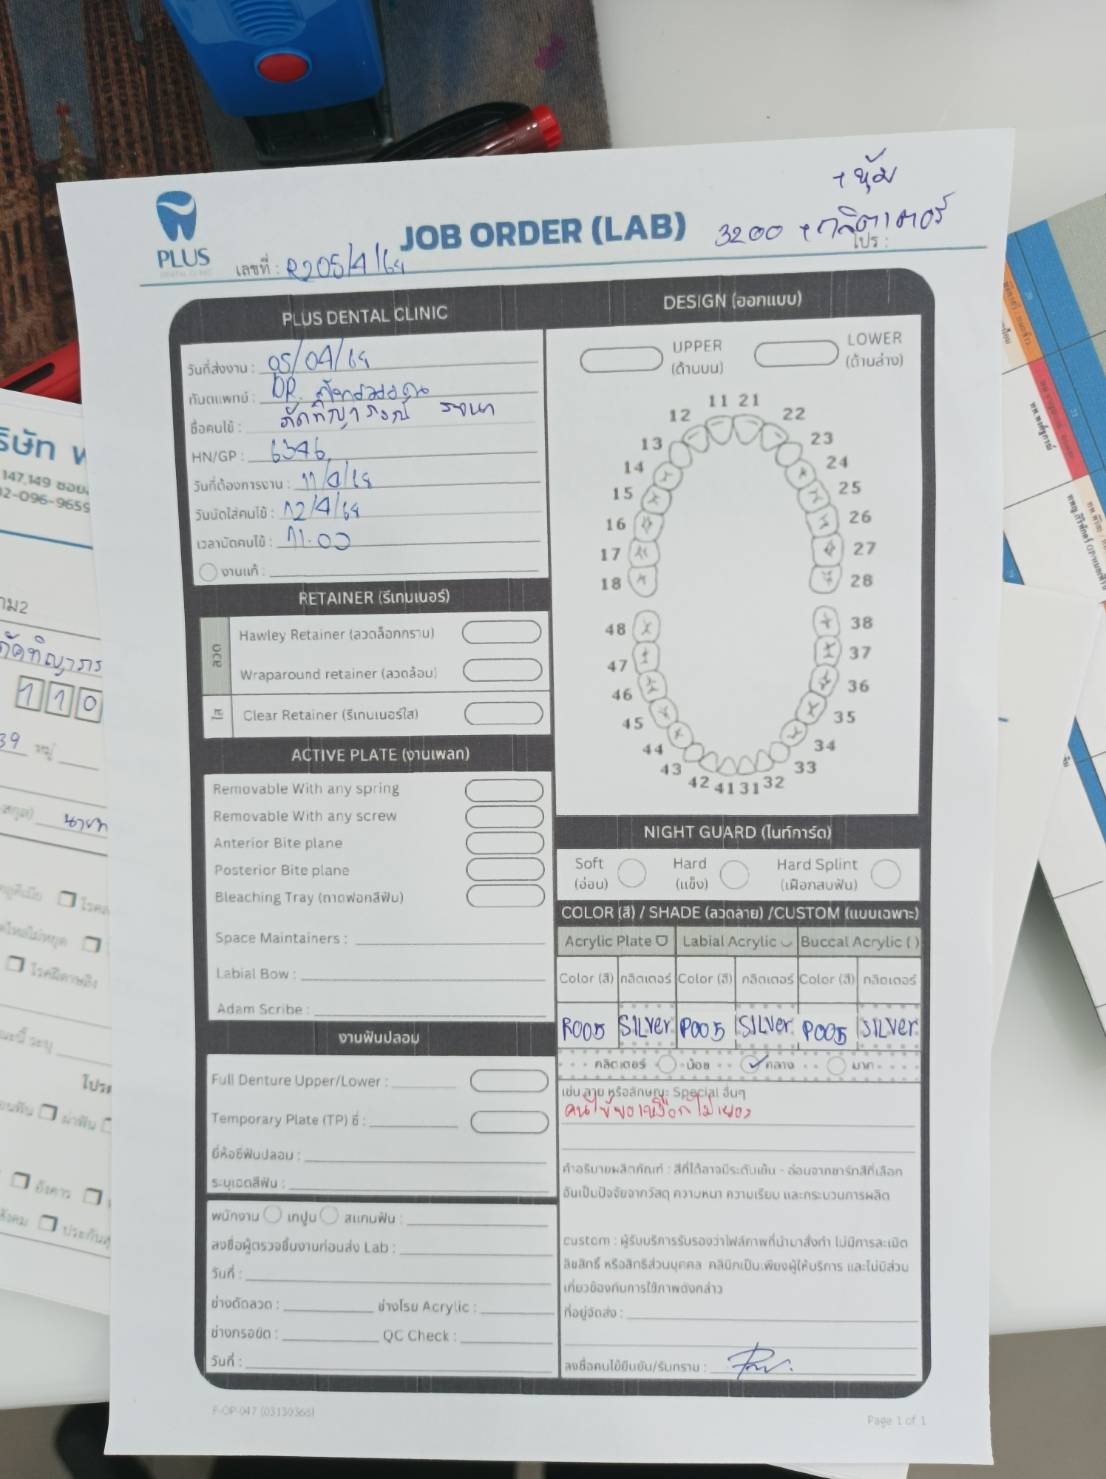 + หุ้ม
3200 + กลิตเตอร์
PLUS
DENTAL CLINIC
JOB ORDER (LAB)
โปร :
เลขที่ : R205/4/69
PLUS DENTAL CLINIC
วันที่ส่งงาน : 05/04/69
ทันตแพทย์ : DR.
ชื่อคนไข้ :
HN/GP : 6346
วันที่ต้องการงาน : 11/4/69
วันนัดใส่คนไข้ : 12/4/69
เวลานัดคนไข้ : 11.00
งานแก้ :
RETAINER (รีเทนเนอร์)
ลวด
Hawley Retainer (ลวดล็อกกราม)
Wraparound retainer (ลวดล้อม)
ใส
Clear Retainer (รีเทนเนอร์ใส)
ACTIVE PLATE (งานเพลท)
Removable With any spring
Removable With any screw
Anterior Bite plane
Posterior Bite plane
Bleaching Tray (ถาดฟอกสีฟัน)
Space Maintainers :
Labial Bow :
Adam Scribe :
งานฟันปลอม
Full Denture Upper/Lower :
Temporary Plate (TP) ซี่ :
ยี่ห้อซี่ฟันปลอม :
ระบุเฉดสีฟัน :
พนักงาน เทปูน สแกนฟัน :
ลงชื่อผู้ตรวจชิ้นงานก่อนส่ง Lab :
วันที่ :
ช่างดัดลวด : ช่างโรย Acrylic :
ช่างกรอขัด : QC Check :
วันที่ :
DESIGN (ออกแบบ)
UPPER
(ด้านบน)
LOWER
(ด้านล่าง)
11 21
12 22
13 23
14 24
15 25
16 26
17 27
18 28
48 38
47 37
46 36
45 35
44 34
43 33
42 41 31 32
NIGHT GUARD (ไนท์การ์ด)
Soft
(อ่อน)
Hard
(แข็ง)
Hard Splint
(เฝือกสบฟัน)
COLOR (สี) / SHADE (ลวดลาย) /CUSTOM (แบบเฉพาะ)
Acrylic Plate Labial Acrylic Buccal Acrylic ( )
Color (สี) กลิตเตอร์ Color (สี) กลิตเตอร์ Color (สี) กลิตเตอร์
R005 SILVER P005 SILVER P005 SILVER
กลิตเตอร์ น้อย ✓ กลาง มาก
เช่น ลาย หรือลักษณะ Special อื่นๆ
คนไข้ขอเหงือกไม่เยอะ
คำอธิบายผลิตภัณฑ์ : สีที่ได้อาจมีระดับเข้ม - อ่อนจากชาร์ทสีที่เลือก
อันเป็นปัจจัยจากวัสดุ ความหนา ความเรียบ และกระบวนการผลิต
custom : ผู้รับบริการรับรองว่าไฟล์ภาพที่นำมาสั่งทำ ไม่มีการละเมิด
ลิขสิทธิ์ หรือสิทธิส่วนบุคคล คลินิกเป็นเพียงผู้ให้บริการ และไม่มีส่วน
เกี่ยวข้องกับการใช้ภาพดังกล่าว
ที่อยู่จัดส่ง :
ลงชื่อคนไข้ยืนยัน/รับทราบ :
F-OP-047 (03130368)
Page 1 of 1
147,149 ซอย
02-096-9659
110
39 หมู่